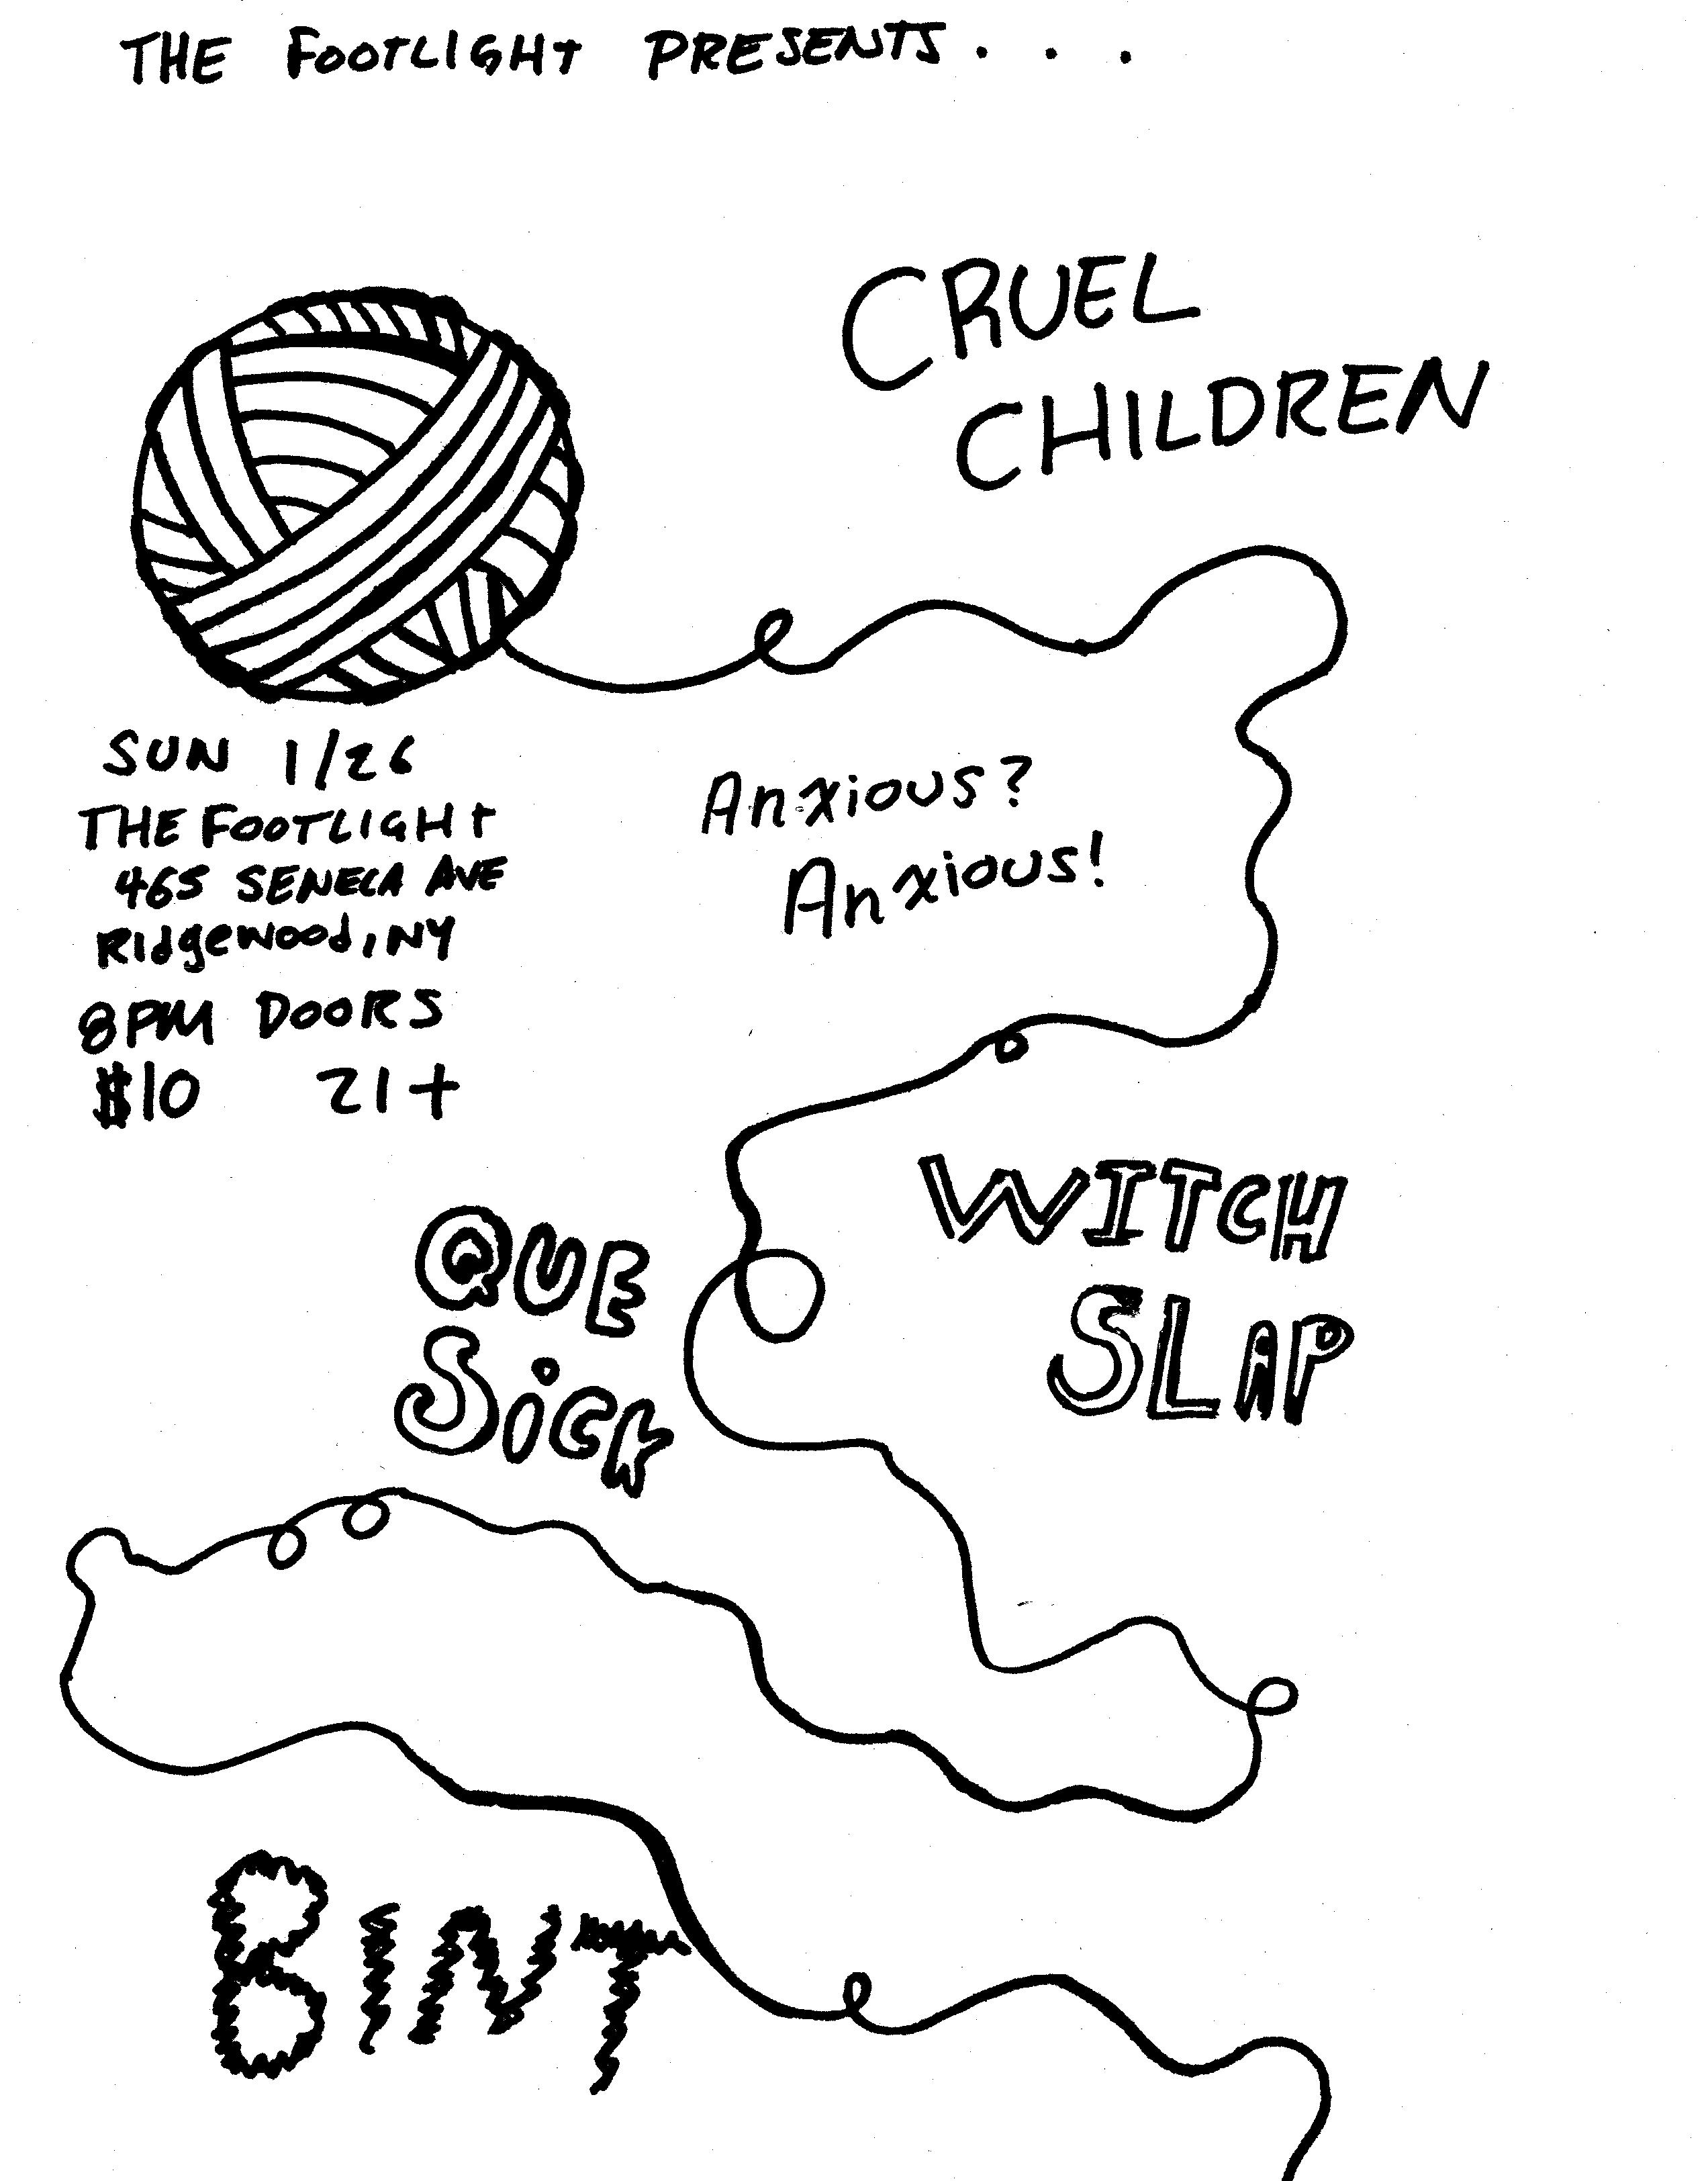 THE FOOTLIGHT PRESENTS...
CRUEL
CHILDREN
SUN 1/26
THE FOOTLIGHT
465 SENECA AVE
Ridgewood, NY
8PM DOORS
$10 21+
Anxious?
Anxious!
WITCH
SLAP
QUE
SiCK
BINT